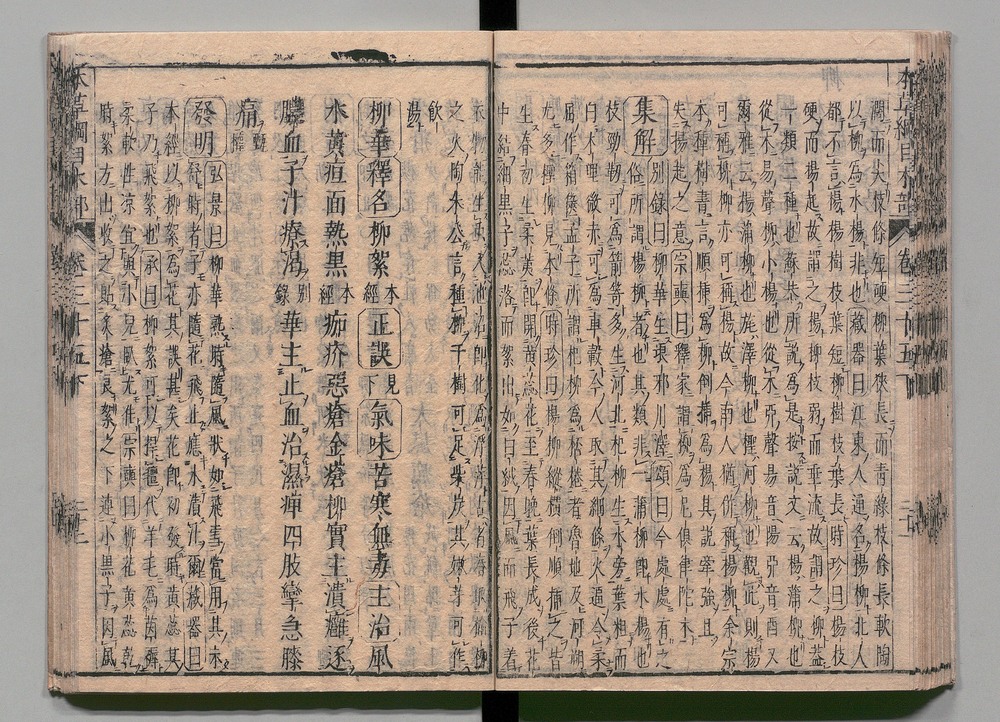 闊而尖枝條短硬柳葉狹長而青綠枝條長軟陶
以柳為水楊非也藏器曰江東人通名楊柳北人
都不言楊楊樹枝葉短柳樹枝葉長時珍曰楊枝
硬而揚起故謂之楊柳枝弱而垂流故謂之柳蓋
一類二種也蘇恭所說為是按說文云楊蒲柳也
從木昜聲柳小楊也從木丣聲昜音陽丣音酉又
爾雅云楊蒲柳也旄澤柳也檉河柳也觀此則楊
可稱柳柳亦可稱楊故今南人猶併稱楊柳俞宗
本種樹書言順插為柳倒插為楊其說牽強且
失揚起之意宗奭曰釋家謂柳為尼俱律陀木
集解別錄曰柳華生琅邪川澤頌曰今處處有之
俗所謂楊柳者也其類非一蒲柳即水楊也
枝勁韌可為箭笴多生河北杞柳生水旁葉粗而
白木理微赤可為車轂今人取其細條火逼令柔
屈作箱篋孟子所謂杞柳為桮棬者魯地及河朔
尤多檉柳見本條時珍曰楊柳縱橫倒順插之皆
生春初生柔荑即開黃蕊花至春晚葉長成後花
中結細黑子蕊落而絮出如白絨因風而飛子着
衣物能生蟲入池沼即化為浮萍古者春取榆柳
之火陶朱公言種柳千樹可足柴炭其嫩芽可作
飲湯
柳華釋名柳絮本經正誤見下氣味苦寒無毒主治風
水黃疸面熱黑本經痂疥惡瘡金瘡柳實主潰癰逐
膿血子汁療渴別錄華主止血治濕痺四肢攣急膝
痛甄權
發明弘景曰柳華熟時隨風狀如飛雪當用其未
舒時者子亦隨花飛止應水漬汁爾藏器曰
本經以柳絮為花其誤甚矣花即初發時黃蕊其
子乃飛絮也承曰柳絮可以捍氈代羊毛為茵褥
柔軟性涼宜與小兒臥尤佳宗奭曰柳花黃蕊乾
時絮方出收之貼灸瘡良絮之下連小黑子因風
本草綱目木部
卷三十五下